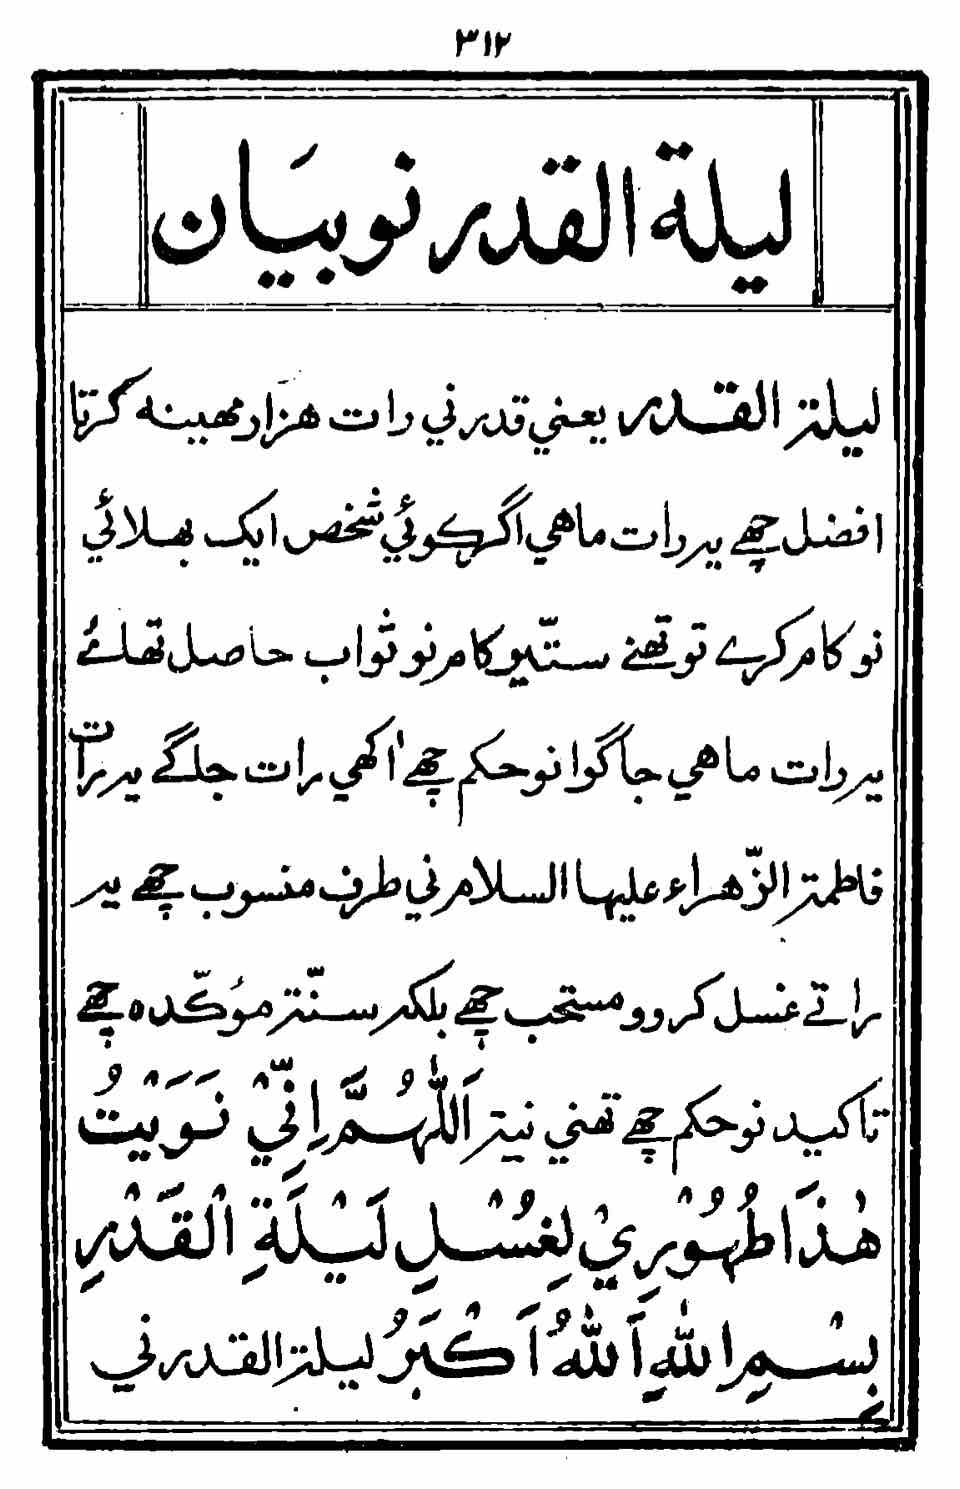 ٣١٢
ليلة القدر نو بيَان
ليلة القدر يعني قدر ني رات هزار مهينه كرتا
افضل چھے يه رات ماهي اگر كوئي شخص ايک بهلائي
نو كام كرے تو تهنے ستّيو كام نو ثواب حاصل تهائے
يه رات ماهي جاگوا نو حكم چھے اٰكهي رات جاگے يه رات
فاطمة الزّهراء عليها السلام ني طرف منسوب چھے يه
راتے غسل كروو مستحب چھے بلكه سنّة مؤكّده چھے
تاكيد نو حكم چھے تهني نية اَللّٰهُمَّ اِنِّيْ نَوَيْتُ
هٰذَا طُهُوْرِيْ لِغُسْلِ لَيْلَةِ الْقَدْرِ
بِسْمِ اللّٰهِ اَللّٰهُ اَكْبَرُ ليلة القدر ني